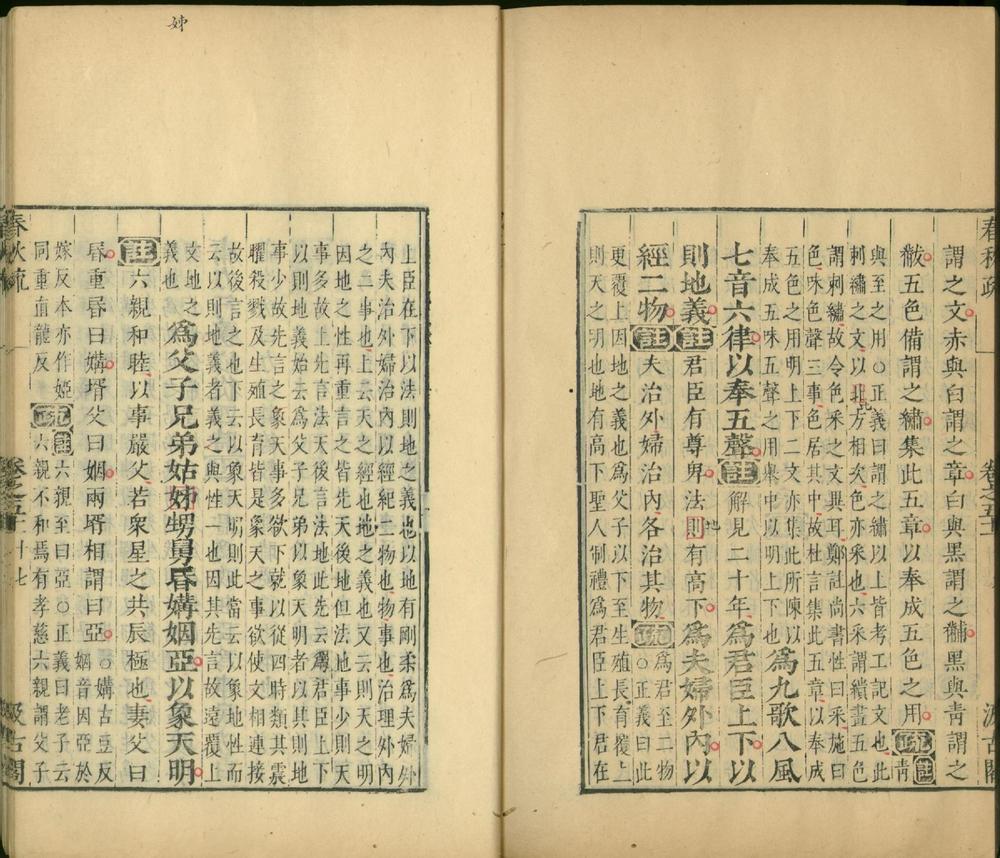 春秋疏
卷之五十一
汲古閣
謂之文赤與白謂之章白與黑謂之黼黑與青謂之
黻五色備謂之繡集此五章以奉成五色之用疏註青
與至之用○正義曰謂之繡以上皆考工記文也此
刺繡之文以比方相次色亦采也六采謂繢畫五色
謂刺繡故令色采之文異耳鄭註尚書性曰采施曰
色味色聲三事色居其中故杜言集此五章以奉成
五色之用明上下二文亦集此所陳以
奉成五味五聲之用舉中以明上下也為九歌八風
七音六律以奉五聲註解見二十年為君臣上下以
則地義註君臣有尊卑法則地有高下為夫婦外內以
經二物註夫治外婦治內各治其物疏為君至二物○正義曰此
更覆上因地之義也為父子以下至生殖長育覆上
則天之明也地有高下聖人制禮為君臣上下君在
姊
上臣在下以法則地之義也以地有剛柔為夫婦外
內夫治外婦治內以經紀二物也物事也治理外內
之二事也上云天之經也地之義也又云則天之明
因地之性再重言之皆先天後地但法地事少則天
事多故上先言法天後言法地此先云為君臣上下
以則地義始云為父子兄弟以象天明者以其則地
事少故先言之為象天事多欲下就以從四時類其震
曜殺戮及生殖長育皆是象天之事欲使文相連接
故後言之也下云以象天明則此當云以象地性而
云以則地義者義之與性一也因其先言故遠覆上
文地之義也為父子兄弟姑姊甥舅昏媾姻亞以象天明
註六親和睦以事嚴父若衆星之共辰極也妻父曰
昏重昏曰媾壻父曰姻兩壻相謂曰亞○媾古豆反姻音因亞於
嫁反本亦作婭疏註六親至曰亞○正義曰老子云
同重直龍反六親不和焉有孝慈六親謂父子
春秋疏
卷之五十一
十七
汲古閣